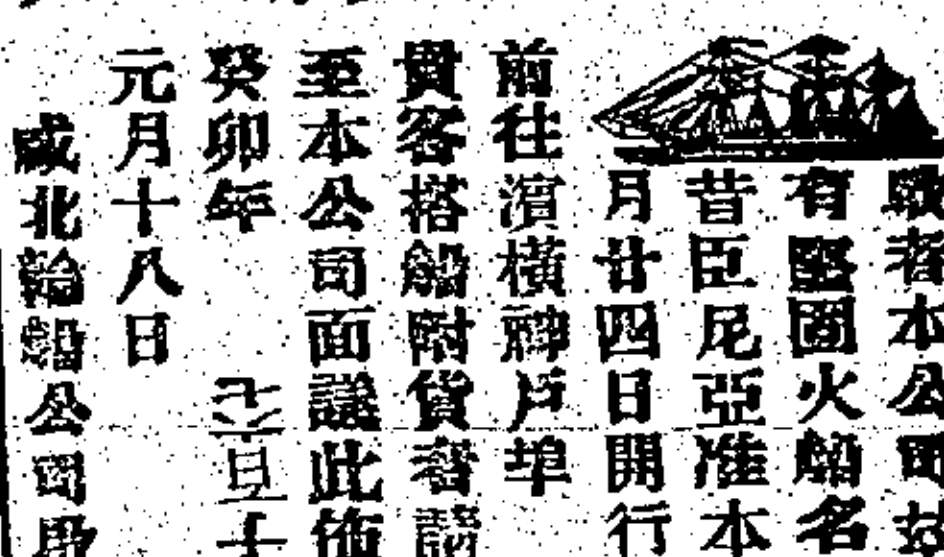 戰者本公司茲
有堅固火船名
昔臣尾亞准本
月廿四日開行
前往濱橫神戶埠
貴客搭船附貨者請
至本公司面議此佈
癸卯年
元月十八日
咸北輪船公司啓